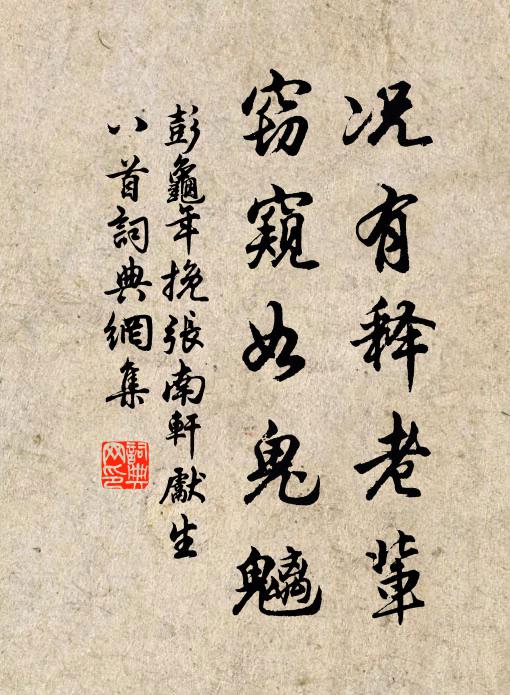 况有释老輩
窃窺如鬼魑
彭龜年挽張南軒獻生
八首詞典網集
詞典
网印